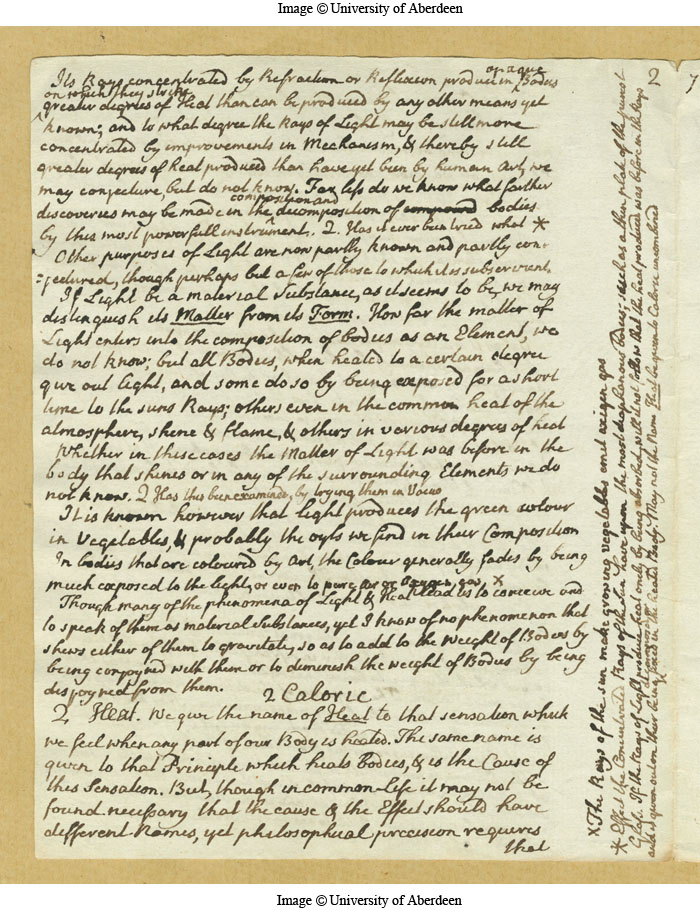 Image © University of Aberdeen
2
Its Rays concentrated by Refraction or Reflexion produce in opaque Bodies
on which they strike
greater degrees of Heat than can be produced by any other means yet
known; and to what degree the Rays of Light may be still more
concentrated by improvements in Mechanism, & thereby still
greater degrees of heat produced than have yet been by human Art, we
may conjecture, but do not know. Far less do we know what farther
discoveries may be made in the composition and decomposition of compound bodies
by this most powerfull instrument. 2. Has it ever been tried what *
Other purposes of Light are now partly known and partly con-
=jectured, though perhaps but a few of those to which it is subservient.
If Light be a material Substance, as it seems to be, we may
distinguish its Matter from its Form. How far the matter of
Light enters into the composition of bodies as an Element, we
do not know; but all Bodies, when heated to a certain degree
give out light, and some do so by being exposed for a short
time to the suns Rays; others even in the common heat of the
atmosphere, shine & flame, & others in various degrees of heat
Whether in these cases the Matter of Light was before in the
body that shines or in any of the surrounding Elements we do
not know. 2 Has this been examined, by trying them in Vacuo
It is known however that light produces the green colour
in Vegetables, & probably the oyls we find in their Composition
In bodies that are coloured by Art, the Colour generally fades by being
much exposed to the light, or even to pure air or Oxygen gas, X
Though many of the phenomena of Light & Heat lead us to conceive and
to speak of them as material Substances, yet I know of no phenomenon that
shews either of them to gravitate, so as to add to the weight of Bodies by
being conjoyned with them or to diminish the weight of Bodies by being
disjoyned from them.
2 Caloric
2 Heat. We give the name of Heat to that sensation which
we feel when any part of our Body is heated. The same name is
given to that Principle which heats Bodies, & is the Cause of
this Sensation. But, though in common Life it may not be
found necessary that the cause & the Effect should have
different Names, yet philosophical precision requires
that
X The Rays of the sun make growing vegetables emit oxigen gas
* Effect the Concentrated Rays of the Sun have upon the most diaphanous Bodies; such as a thin plate of the purest
Glass. If the Rays of Light produce heat onely by being absorbed, will it not follow that the heat produced was before in the Rays
and is given out on their being fixed in the heated Body. May not the Name Heat be given to Caloric uncombined
Image © University of Aberdeen